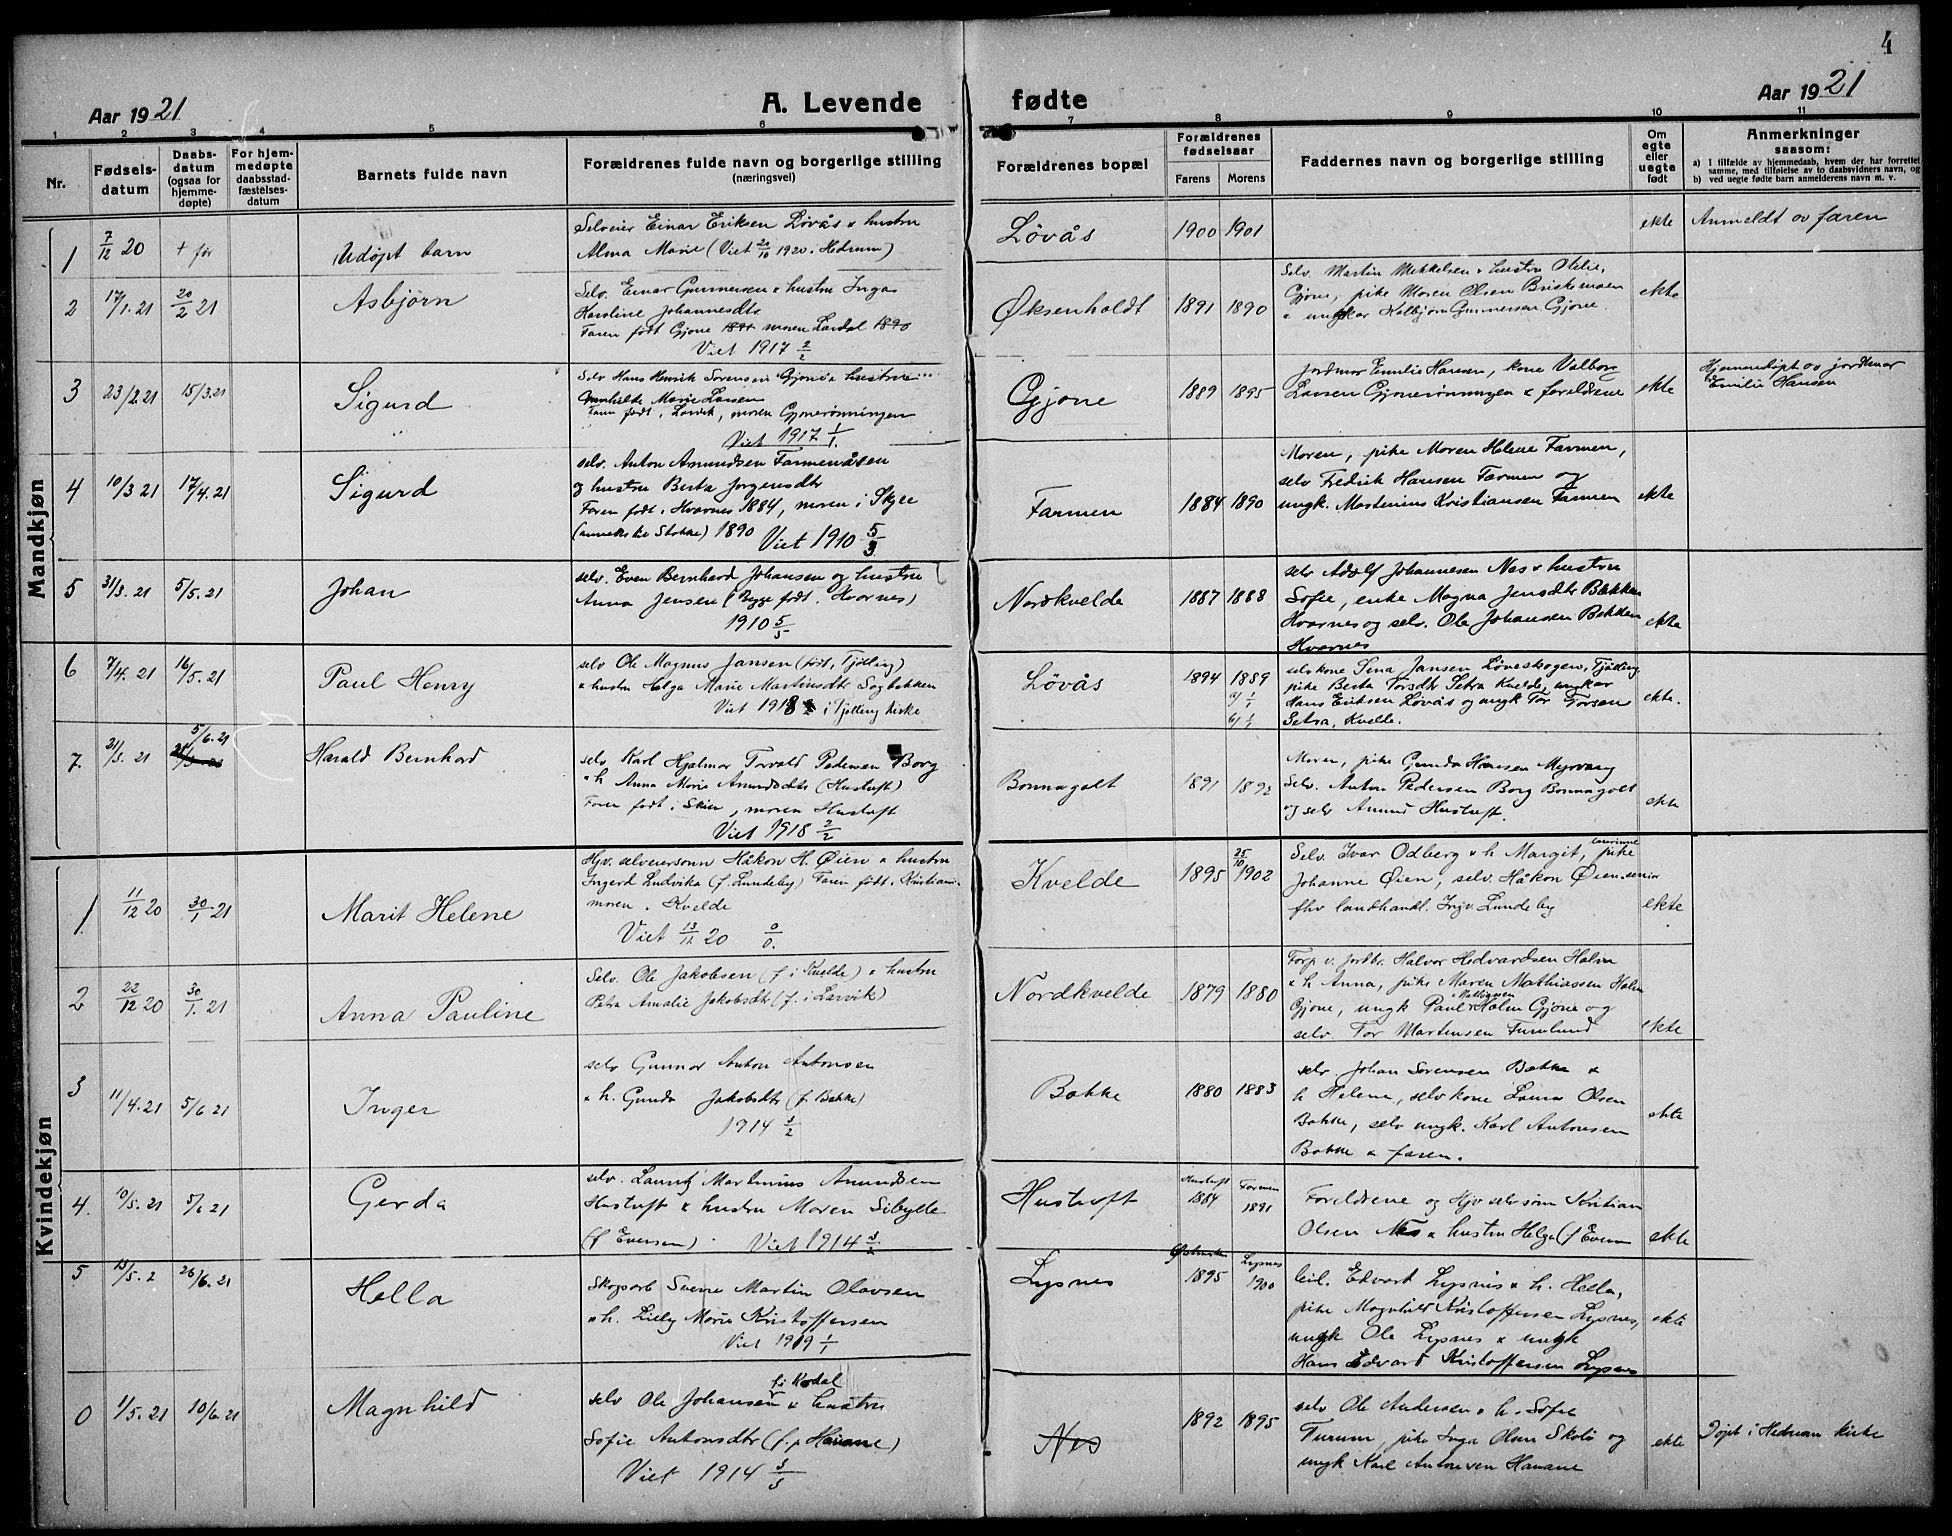 4
Aar 1921
A. Levende fødte
Aar 1921
1 2 3 4 5 6 7 8 9 10 11
Nr.
Fødsels-
datum
Daabs-
datum
(ogsaa for
hjemme-
døpte)
For hjem-
medøpte
daabsstad-
fæstelses-
datum
Barnets fulde navn
Forældrenes fulde navn og borgerlige stilling
(næringsvei)
Forældrenes bopæl
Forældrenes
fødselsaar
Farens Morens
Faddernes navn og borgerlige stilling
Om
egte
eller
uegte
født
Anmerkninger
saasom:
a) I tilfælde av hjemmedaab, hvem der har forrettet
samme, med tilføielse av to daabsvidners navn, og
b) ved uegte fødte barn anmelderens navn m. v.
Mandkjøn
1 7/12 20 + før Udøpt barn
Selveier Einar Eriksen Løvås & hustru
Alma Marie (Viet 20/10 1920 i Hedrum)
Løvås 1900 1901 ekte Anmeldt av faren
2 17/1.21 20/2 21 Asbjørn
Selv. Einar Gunnersen & hustru Inga
Karoline Johannesdtr
Faren født Gjone 1891 moren Lardal 1890
Viet 1917 2/2
Øksenholdt 1891 1890
Selv. Martin Mikkelsen & hustru Otilie,
Gjone, pike Maren Olsen Briskemoen
& ungkar Kolbjørn Gunnersen Gjone.
ekte
3 23/2 21 15/3.21 Sigurd
Selv Hans Henrik Sørensen Gjone & hustru
Marie Larsen
Faren født i Larvik, moren Gjonerønningen
Viet 1917 1/1.
Gjone 1889 1895
Jordmor Emilie Hansen, kone Valborg
Larsen Gjonerønningen & foreldrene
ekte
Hjemmedøpt av jordmor
Emilie Hansen
4 10/3 21 17/4.21 Sigurd
selv. Anton Amundsen Farmenåsen
og hustru Berta Jørgensdtr
Faren født i Hvarnes 1884, moren i Skjee
(anneks til Stokke) 1890 Viet 1910 5/3
Farmen 1884 1890
Moren, pike Maren Helene Farmen,
selv Fredrik Hansen Farmen og
ungk. Martinius Kristiansen Farmen
ekte
5 31/3. 21 5/5. 21 Johan
selv. Even Bernhard Johansen og hustru
Anna Jensen (Begge født i Hvarnes)
1910 5/5
Nordkvelde 1887 1888
selv Adolf Johannesen Nes & hustru
Sofie, enke Magna Jensdtr Bakken
Hvarnes og selv. Ole Johansen Bakken
Hvarnes
ekte
6 7/4. 21 16/5. 21 Paul Henry
selv Ole Magnus Jansen (født i Tjølling)
& hustru Helga Marie Martinsdtr Sagbakken
Viet 1918 i Tjølling kirke
Løvås 1894 1889
selv kone Sina Jansen Løveskogen, Tjølling
pike Berta Torsdtr Setra Kvelde, ungkar
Hans Eriksen Løvås og ungk Tor Torsen
Setra, Kvelde.
ekte.
7. 21/3. 21 5/6.21 Harald Bernhard
selv Karl Hjalmar Torvald Pedersen Borg
& h Anna Marie Amundsdtr (Hustuft)
Faren født i Skien, moren Hustuft
Viet 1918 2/2
Bonnagolt 1891 1892
Moren, pike Gunda Hansen Myrvang
Selv. Anton Pedersen Borg Bonnagolt
og selv Amund Hustuft.
ekte
Kvindekjøn
1 11/12 20 30/1 21 Marit Helene
Hjv. selveiersønn Håkon H. Øien & hustru
Ingerd Ludvika (f. Lundeby) Faren født i Kristiania
moren i Kvelde
Viet 13/11. 20 0/0.
Kvelde 1895 25/10 1902
Selv. Ivar Odberg & h Margit, lærerinne pike
Johanne Øien, selv. Håkon Øien senior
fhv landhandl. Ingv Lundeby
ekte
2 22/12 20 30/1. 21 Anna Pauline
Selv. Ole Jakobsen (f. i Kvelde) & hustru
Petra Amalie Jakobsdtr (f. i Larvik)
Nordkvelde 1879 1880
Forp. v. jordbr. Halvor Hedvardsen Holm
& h Anna, pike Maren Mathiassen Holm
Gjone, ungk Paul Mathiassen Holm Gjone og
selv. Tor Martinsen Furulund
ekte
3 11/4.21 5/6 21 Inger
selv Gunnar Anton Antonsen
& h. Gunda Jakobsdtr (f. Bakke)
1914 3/2
Bakke 1880 1883
selv. Johan Sørensen Bakke &
h Helene, selv kone Laura Olsen
Bakke, selv ungk. Karl Antonsen
Bakke & faren.
ekte
4. 10/5. 21 5/6 21 Gerda
selv. Lauritz Martinius Amundsen
Hustuft & hustru Maren Sibylle
(f Evensen) Viet 1914 3/2
Hustuft Hustuft 1884 Farmen 1891
Foreldrene og Hjv selv sønn Kristian
Olsen Nes & hustru Helga (f Evensen
ekte
5 15/5. 2 26/6. 21 Hella
Skogsarb Sverre Martin Olavsen
& h. Lilly Marie Kristoffersen
Viet 1919 1/1
Lysnes 1895 Lysnes 1900
leil. Edvart Lysnes & h. Hella,
pike Magnhild Kristoffersen Lysnes,
ungk Ole Lysnes & ungk
Hans Edvard Kristoffersen Lysnes
ekte
0 1/5. 21 10/6. 21 Magnhild
selv Ole Johansen f. i Kodal & hustru
Sofie Antonsdtr (f. p Havane)
Viet 1914 3/3
Nes 1892 1895
selv Ole Andersen & h. Sofie
Furum, pike Inga Olsen Skolø og
ungk Karl Antonsen Havane
ekte Døpt i Hedrum kirke